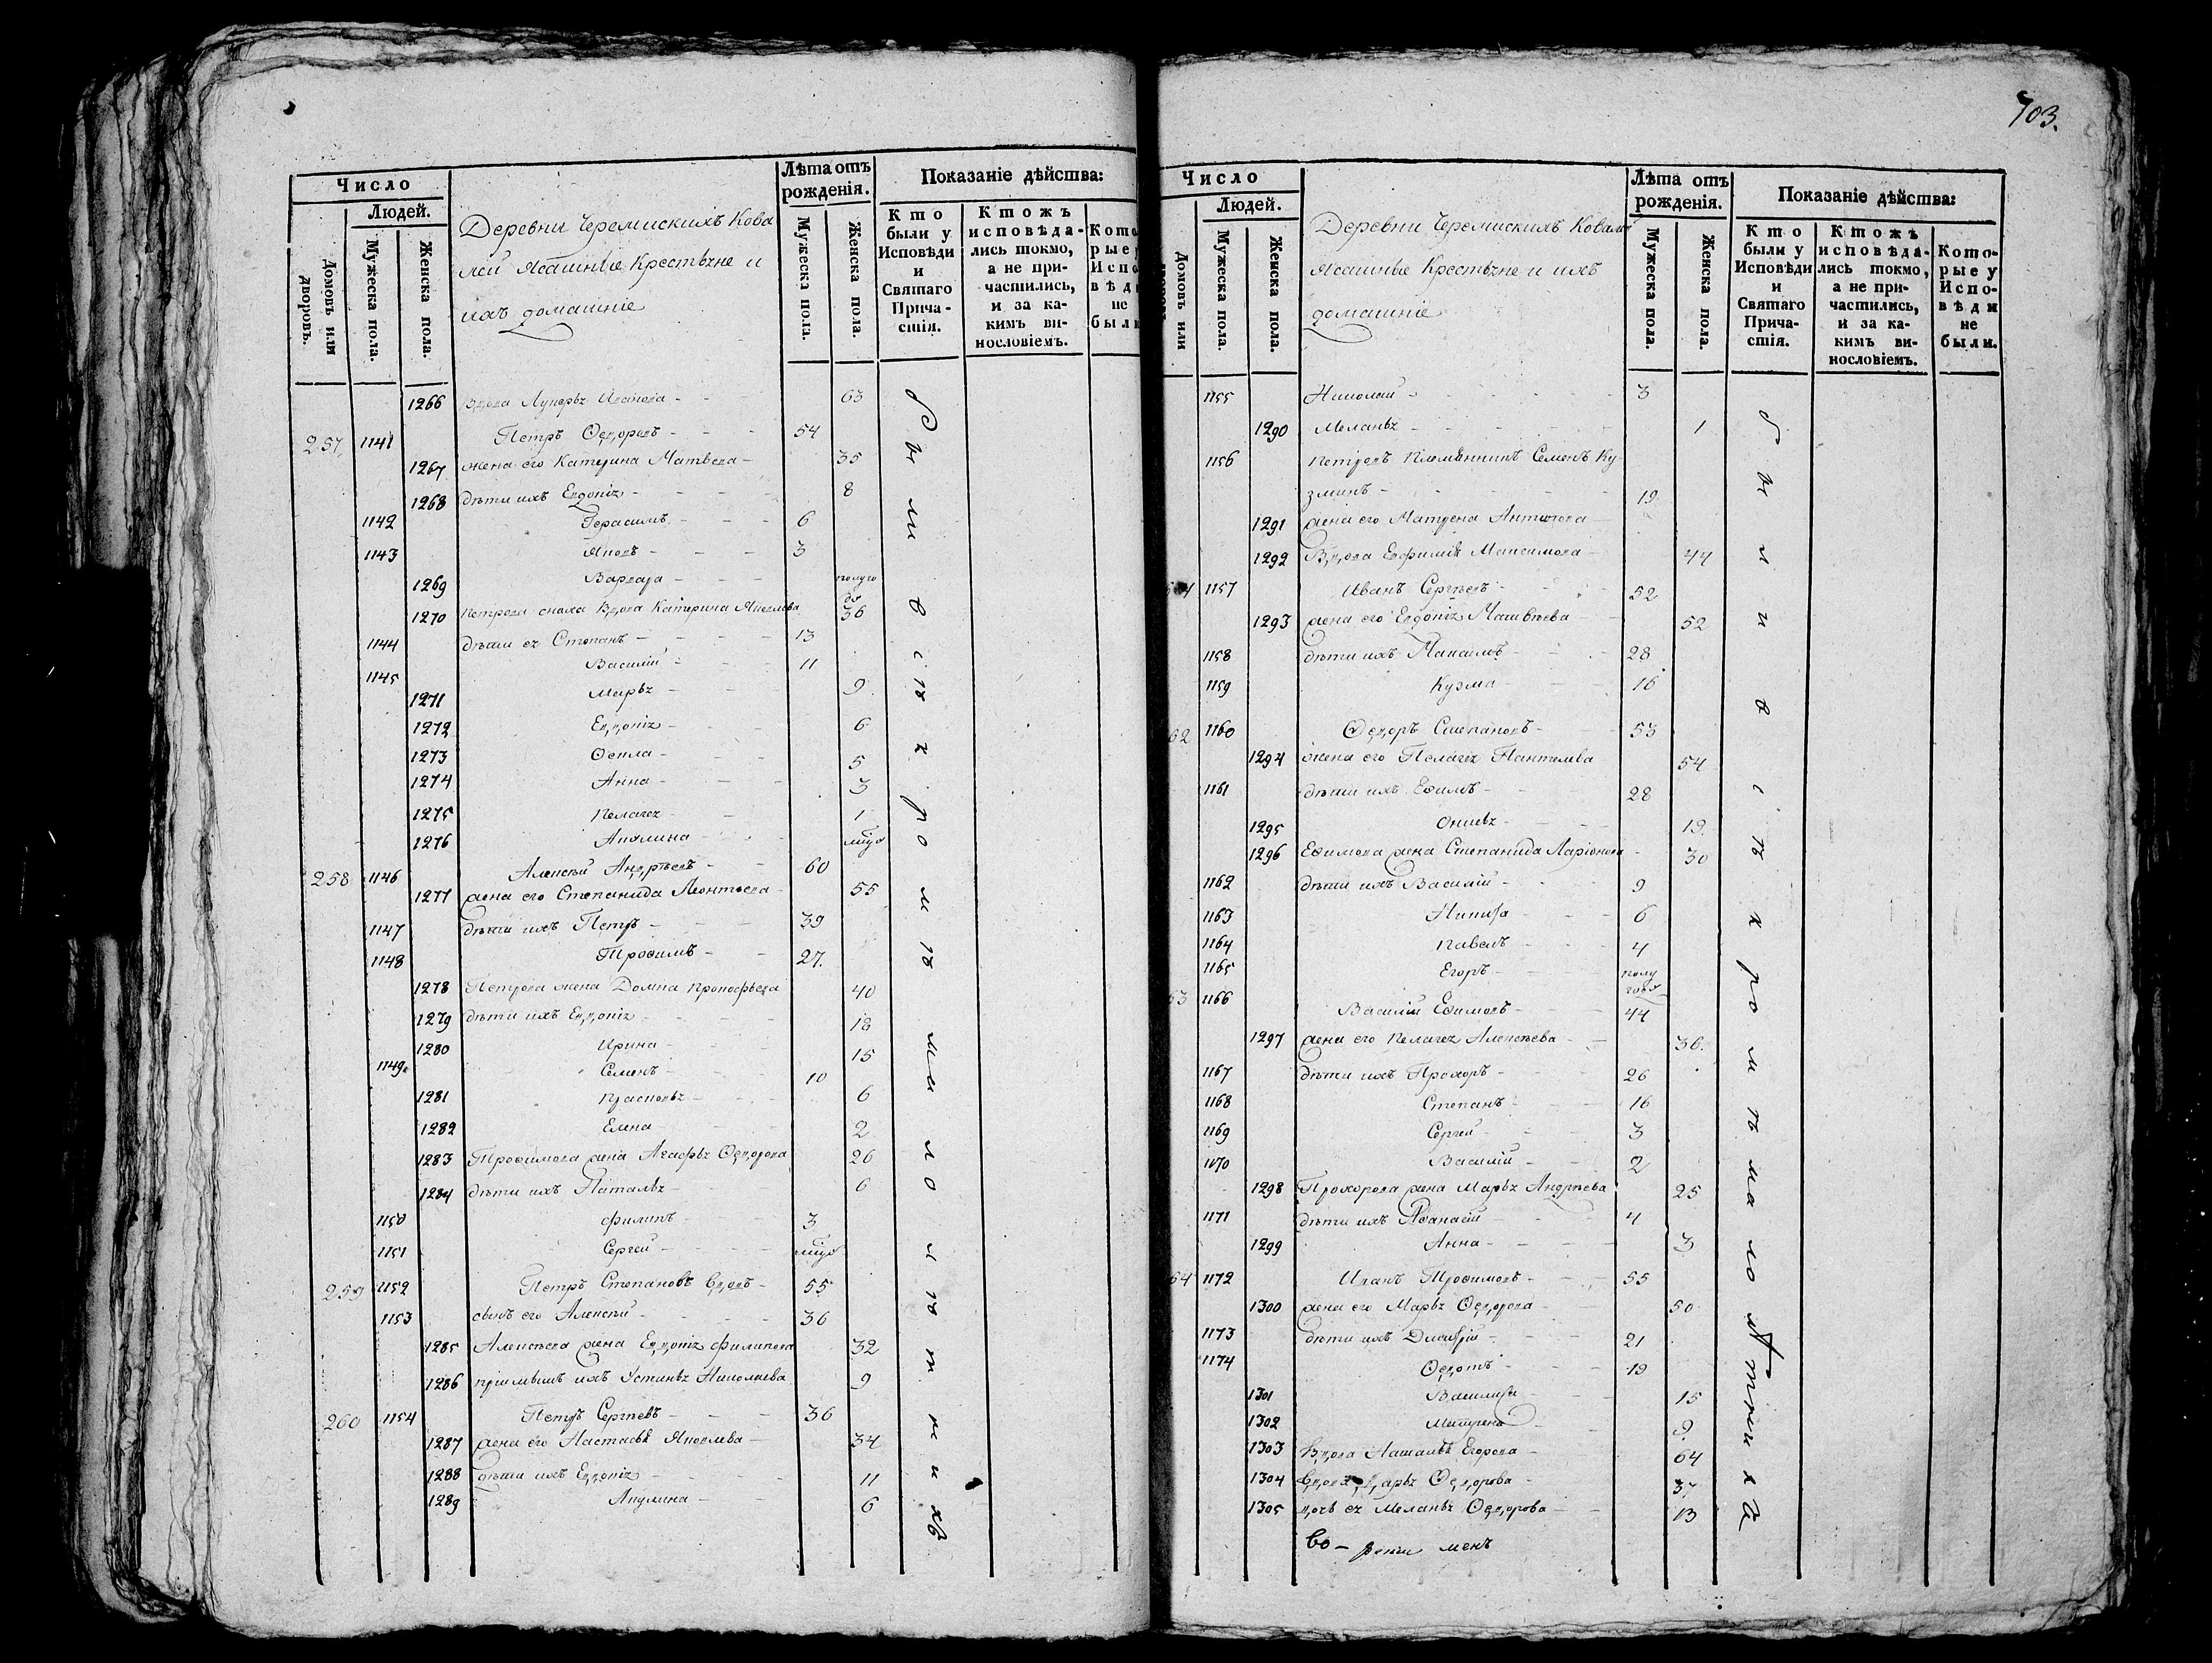 703.
Число
Людей.
Домовъ или дворовъ.
Мужеска пола.
Женска пола.
Деревни Черемискихъ Кова
лей Ясашныя Крестьяне и
ихъ домашніе
Лѣта отъ рожденія.
Мужеска пола.
Женска пола.
Показаніе дѣйства:
Кто были у Исповѣди и Святаго Прича-стія.
Ктожъ исповѣда-лись токмо, а не при-частились, и за ка-кимъ ви-нословіемъ.
Кото рые у Испо вѣди не были
1266 Вдова Лукерья Иванова - 63
257 1141 Петръ Ѳедоровъ - 54
1267 жена его Катерина Матвеева - 35
1268 дѣти ихъ Евдокія - 8
1142 Герасимъ - 6
1143 Яковъ - 3
1269 Варвара - полуго
да
1270 Петрова сноха Вдова Катерина Яковлева 36
1144 дѣти ея Степанъ - 13
1145 Василій - 11
1271 Марья - 9
1272 Евдокія - 6
1273 Ѳекла - 5
1274 Анна - 3
1275 Пелагея - 1
1276 Акилина -
258 1146 Алексѣй Андрѣевъ - 60
1277 жена его Степанида Леонтьева - 55
1147 дѣти ихъ Петръ - 39
1148 Трофимъ - 27.
1278 Петрова жена Домна Прокофьева 40
1279 дѣти ихъ Евдокія - 18
1280 Ирина - 15
1149 Семенъ - 10
1281 Прасковья - 6
1282 Елена - 2
1283 Трофимова жена Агафья Ѳедорова 26
1284 дѣти ихъ Наталья - 6
1150 Филипъ - 3
1151 Сергей -
259 1152 Петръ Степановъ Вдовъ - 55
1153 сынъ его Алексѣй - 36
1285 Алексѣева жена Евдокія Филипова 32
1286 пріемышъ ихъ Устинья Николаева 9
260 1154 Петръ Сергѣевъ - 36
1287 жена его Настасья Яковлева - 34
1288 дѣти ихъ Евдокія - 11
1289 Акулина - 6
были
Число
Людей.
Домовъ или
Мужеска пола.
Женска пола.
Деревни Черемискихъ Ковалей
Ясашныя Крестьяне и ихъ
домашніе
Лѣта отъ рожденія.
Мужеска пола.
Женска пола.
Показаніе дѣйства:
Кто были у Исповѣди и Святаго Прича-стія.
Ктожъ исповѣда-лись токмо, а не при-частились, и за ка-кимъ ви-нословіемъ.
Кото-рые у Испо-вѣди не были.
1155 Николай - 3
1290 Меланья - 1
1156 Петровъ Племянникъ Семенъ Ку-
зминъ - 19
1291 жена его Матрена Антонова
1292 Вдова Евфимія Максимова - 44
1157 Иванъ Сергѣевъ - 52
1293 жена его Евдокія Матвѣева - 52
1158 дѣти ихъ Максимъ - 28
1159 Кузма - 16
62 1160 Ѳедоръ Степановъ - 53
1294 жена его Пелагея Пантелева 54
1161 дѣти ихъ Ефимъ - 28
1295 19.
1296 Ефимова жена Степанида Ларіонова - 30
1162 дѣти ихъ Василій - 9
1163 Никита - 6
1164 Павелъ - 4
1165 Егоръ - полу
года
63 1166 Василій Ефимовъ - 44
1297 жена его Пелагея Алексѣева - 36.
1167 дѣти ихъ Прохоръ - 26
1168 Степанъ - 16
1169 Сергей - 3
1170 Василій - 2
1298 Прохорова жена Марья Андрѣева 25
1171 дѣти ихъ Афанасій - 4
1299 Анна - 3
64 1172 Иванъ Трофимовъ - 55
1300 жена его Марья Ѳедорова - 50
1173 дѣти ихъ Дмитрій - 21
1174 Ѳедотъ - 19
1301 Василиса - 15
1302 Матрена 9.
1303 Вдова Наталья Егорова - 64
1304 Вдова Дарья Ѳедорова - 37
1305 дочь ея Меланья Ѳедорова - 13
были